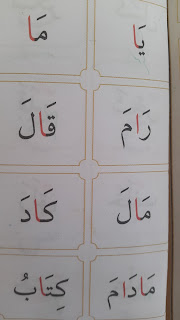 يَا مَا
رَامَ قَالَ
مَالَ كَادَ
مَادَامَ كِتَابُ